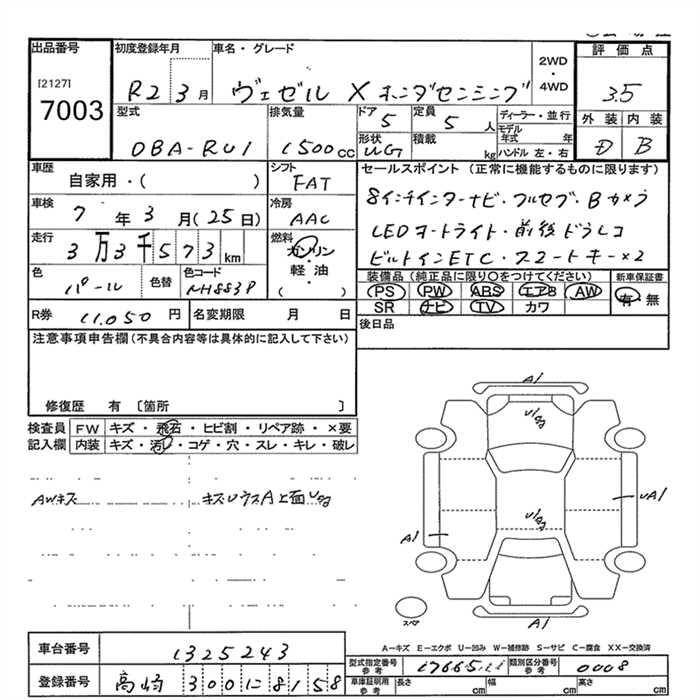 出品番号 初度登録年月 車名・グレード 2WD・4WD 評価点
[2127]
7003
R2 3月 ヴェゼル X ホンダセンシング
3.5
型式 排気量 ドア 定員 ディーラー・並行 外装 内装
DBA-RU1 1500cc 5 5人 モデル年式 年
形状 積載 D B
UG kg ハンドル 左・右
車歴 シフト セールスポイント(正常に機能するものに限ります)
自家用・( ) FAT
8インチインターナビ・フルセグ・Bカメラ
車検 冷房
7年3月(25日) AAC
LEDオートライト・前後ドラレコ
走行 燃料
3万3千573km ガソリン・軽油・( )
ビルトインETC・スマートキー×2
色 色替 色コード 装備品(純正品に限り○をつけてください) 新車保証書
パール NH883P PS PW ABS エアB AW 有・無
SR ナビ TV カワ
R券 11,050円 名変期限 月 日 後日品
注意事項申告欄(不具合内容等は具体的に記入して下さい)
修復歴 有 〔箇所 〕
検査員記入欄 FW キズ・飛石・ヒビ割・リペア跡・×要
内装 キズ・汚れ・コゲ・穴・スレ・キレ・破レ
AWキズ キズUウスA上面
A1
UA1
A1
A1
スペア
A-キズ E-エクボ U-凹み W-補修跡 S-サビ C-腐食 XX-交換済
車台番号 1325243
型式指定番号 参考 類別区分番号 参考 0008
登録番号 高崎 300 に 8158
車庫証明用 参考 長さ cm 幅 cm 高さ cm